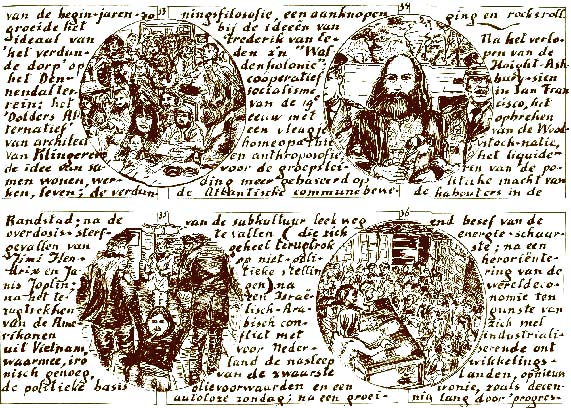 33
van de begin-jaren-70
groeide het
ideaal van
'het verdun-
de dorp' op
het Den-
nendal ter-
rein; het
'Oolders Al-
ternatief'
van architect
van Klingeren
de idee van sa-
men wonen, wer-
ken, leven; de verdun-
ningsfilosofie, een aanknopen
bij de ideeën van
Frederik van Ee-
den z'n "Wal-
denkolonie":
coöperatief
socialisme
van de 19e
eeuw met
een vleugje
homeopathie
en anthroposofie
voor de groepslei-
ding meer gebaseerd op
de Atlantische commune bewe-
34
ging en rock&roll.
Na het verlo-
pen van de
Haight-Ash-
bury-sien
in San Fran-
cisco, het
opbreken
van de Wood-
stock-natie,
het liquider-
en van de po-
litieke macht van
de kabouters in de
35
Randstad; na de
overdosis-sterf-
gevallen van
Jimi Hen-
drix en Ja-
nis Joplin;
na het te-
rugtrekken
van de Ame-
rikanen
uit Vietnam,
waarmee, iro-
nisch genoeg,
de politieke basis
van de subkultuur leek weg
te vallen (die zich
geheel terugtrok
op niet-poli-
tieke stellin-
gen) na
een Israë-
lisch-Ara-
bisch con-
flict met
voor Neder-
land de nasleep
van de zwaarste
olievoorwaarden en een
autoloze zondag; na een groei-
36
end besef van de
energie-schaar-
ste; na een
heroriënte-
ring van de
wereldeco-
nomie ten
gunste van
zich met
industriali-
serende ont-
wikkelings-
landen, opnieuw
ironie, zoals decen-
nia lang door 'progres-